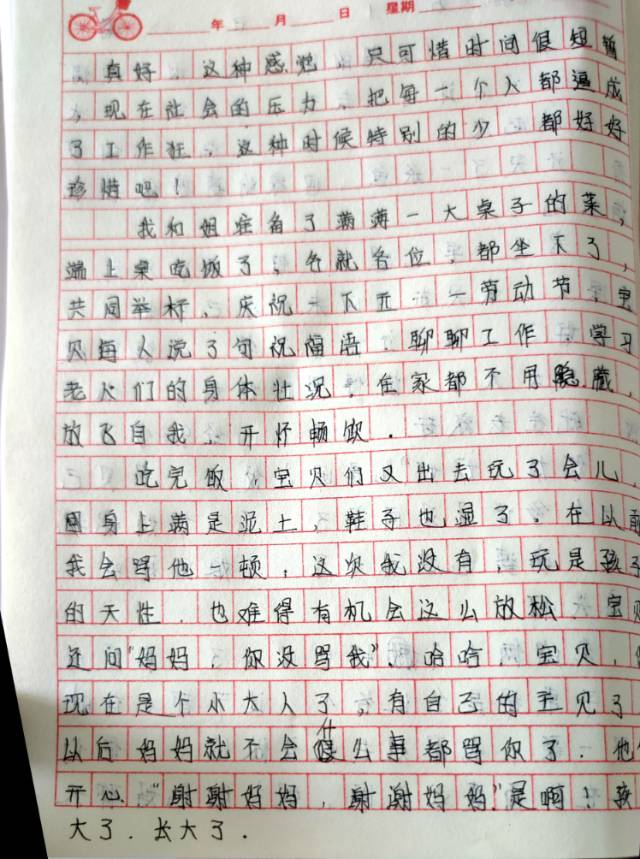 年 月 日 星期
真好,这种感觉,只可惜时间很短暂
,现在社会的压力,把每一个人都逼成
了工作狂,这种时候特别的少,都好好
珍惜吧!
我和姐准备了满满一大桌子的菜,
端上桌吃饭了,各就各位,都坐下了,
共同举杯,庆祝一下五一劳动节,宝
贝每人说了句祝福语,聊聊工作,学习
老人们的身体壮况,在家都不用隐藏,
放飞自我,开怀畅饮.
吃完饭,宝贝们又出去玩了会儿,
回身上满是泥土,鞋子也湿了,在以前
我会骂他一顿,这次我没有,玩是孩子
的天性,也难得有机会这么放松,宝贝
还问"妈妈,你没骂我",哈哈,宝贝,
现在是个小大人了,有自己的主见了
以后妈妈就不会什么事都骂你了.他
开心."谢谢妈妈,谢谢妈妈"是啊!孩
大了.长大了.